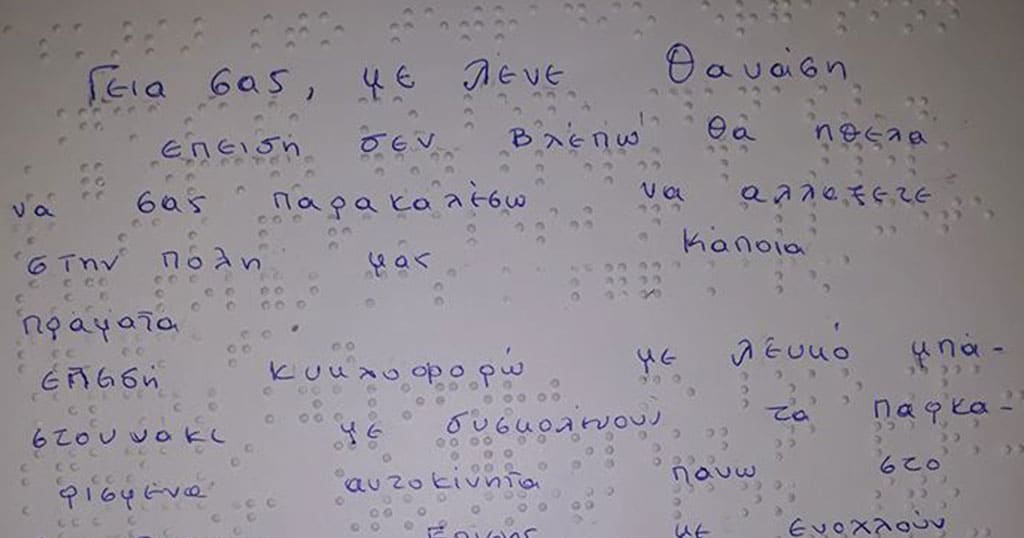 Γεια σας, με λένε Θανάση
επειδή δεν βλέπω θα ήθελα
να σας παρακαλέσω να αλλάξετε
στην πόλη μας κάποια
πράματα
επεδή κυκλοφορώ με λευκό μπα-
στουνάκι με δυσκολεύουν τα παρκα-
ρισμένα αυτοκίνητα πανω στο
Επίσης με ενοχλούν